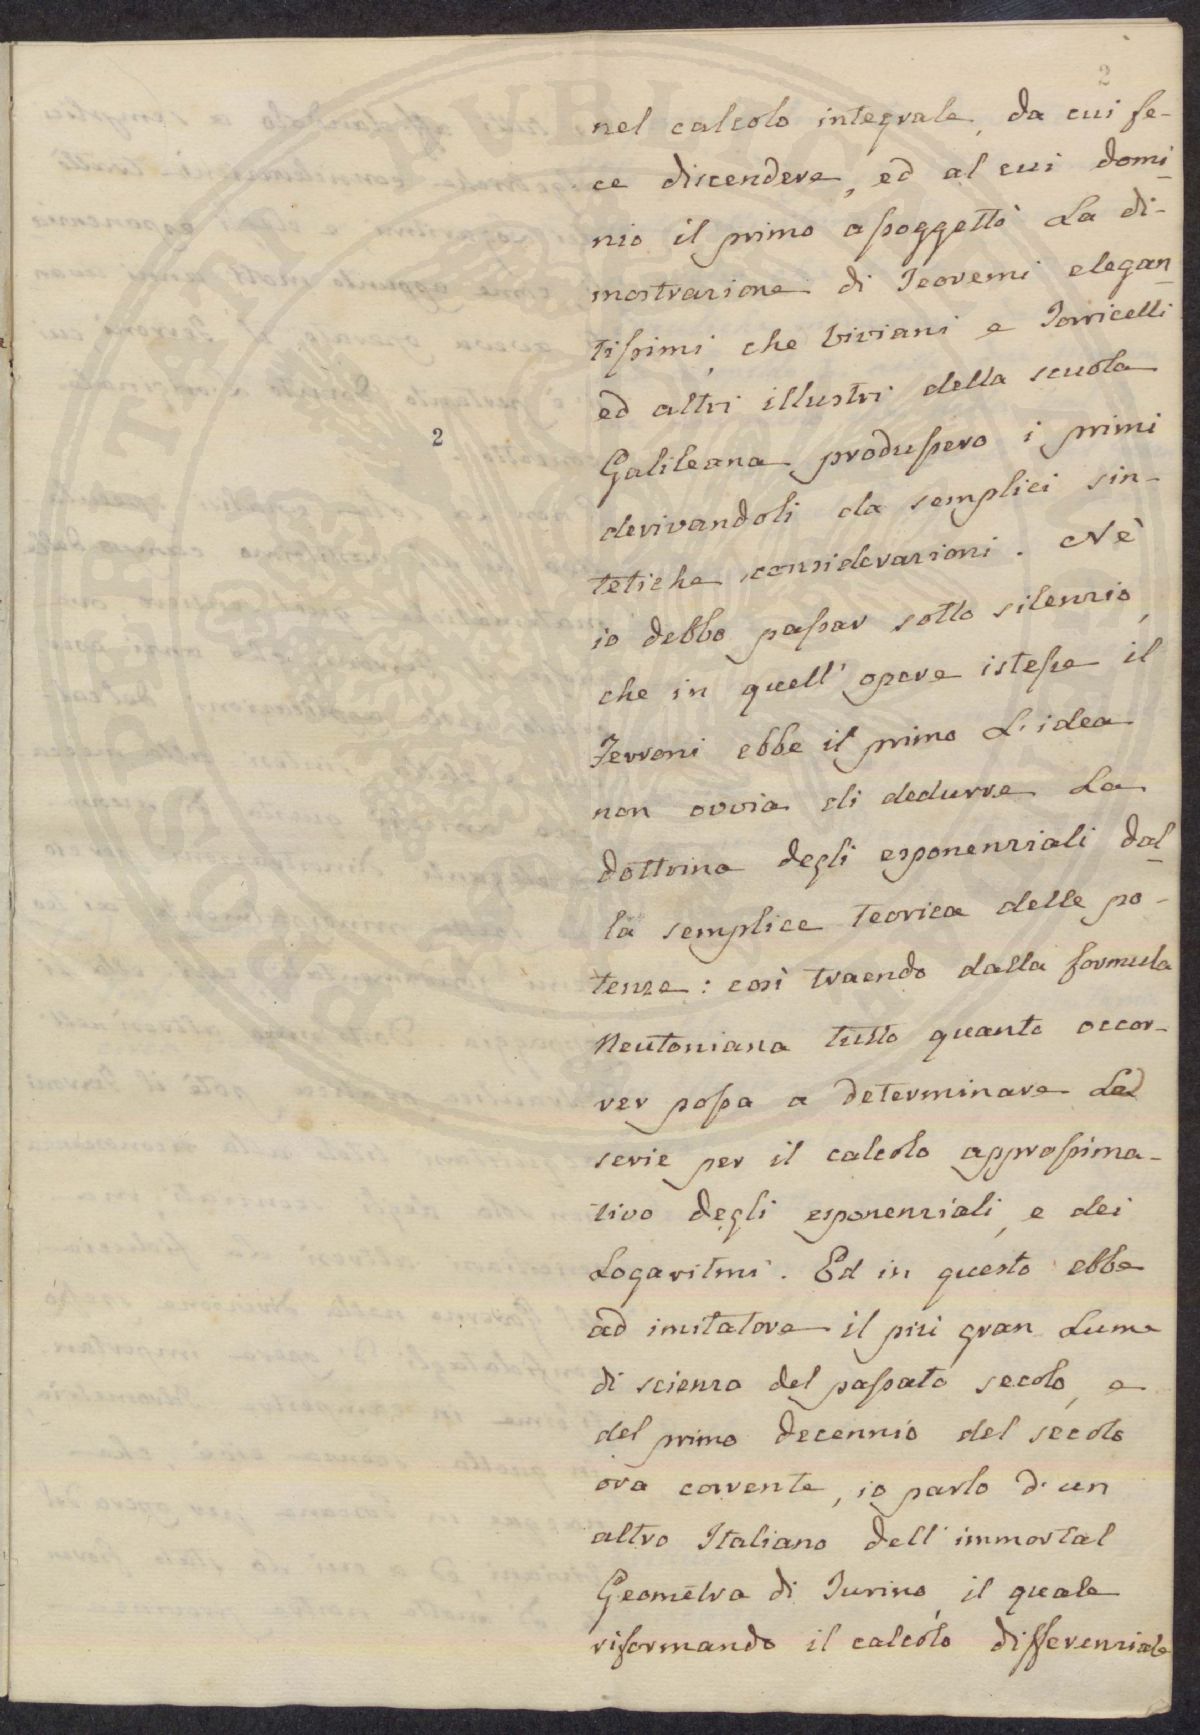 2
nel calcolo integrale, da cui fe-
ce discendere, ed al cui domi-
nio il primo assoggettò La di-
mostrazione di Teoremi elegan-
tissimi, che Viviani e Torricelli
ed altri illustri della scuola
Galileana produssero i primi
2
derivandoli da semplici sin-
tetiche considerazioni. Nè
io debbo passar sotto silenzio,
che in quell' opere istesse il
Ferroni ebbe il primo L'idea
non ovvia di dedurre La
dottrina degli esponenziali dal-
la semplice teorica delle po-
tenze: così traendo dalla formula
Neutoniana tutto quanto occor-
rer possa a determinare Le
serie per il calcolo approssima-
tivo degli esponenziali, e dei
Logaritmi. Ed in questo ebbe
ad imitatore il più gran Lume
di scienza del passato secolo, e
del primo decennio del secolo
ora corrente, io parlo d'un
altro Italiano dell' immortal
Geometra di Turino, il quale
riformando il calcolo differenziale